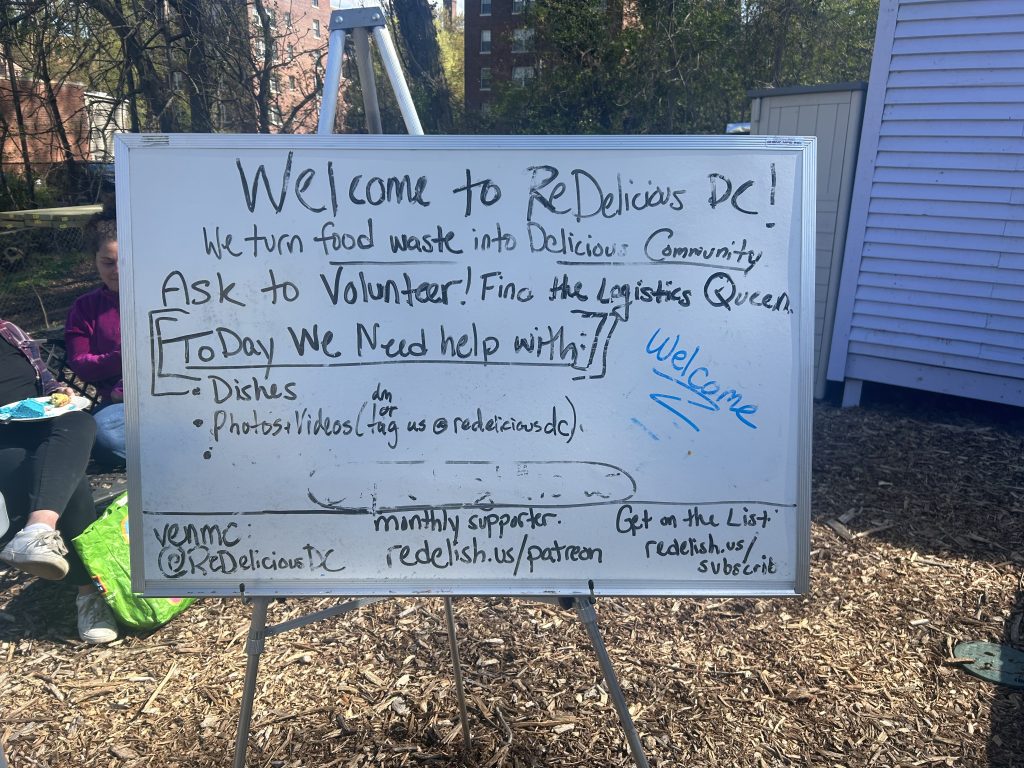 Welcome to ReDelicious DC!
We turn food waste into Delicious Community
Ask to Volunteer! Find the Logistics Queen.
Today We Need help with:
• Dishes
• Photos+Videos (dm or tag us @redeliciousdc).
•
Welcome
venmo:
@ReDeliciousDC
monthly supporter.
redelish.us/patreon
Get on the List:
redelish.us/
subscribe